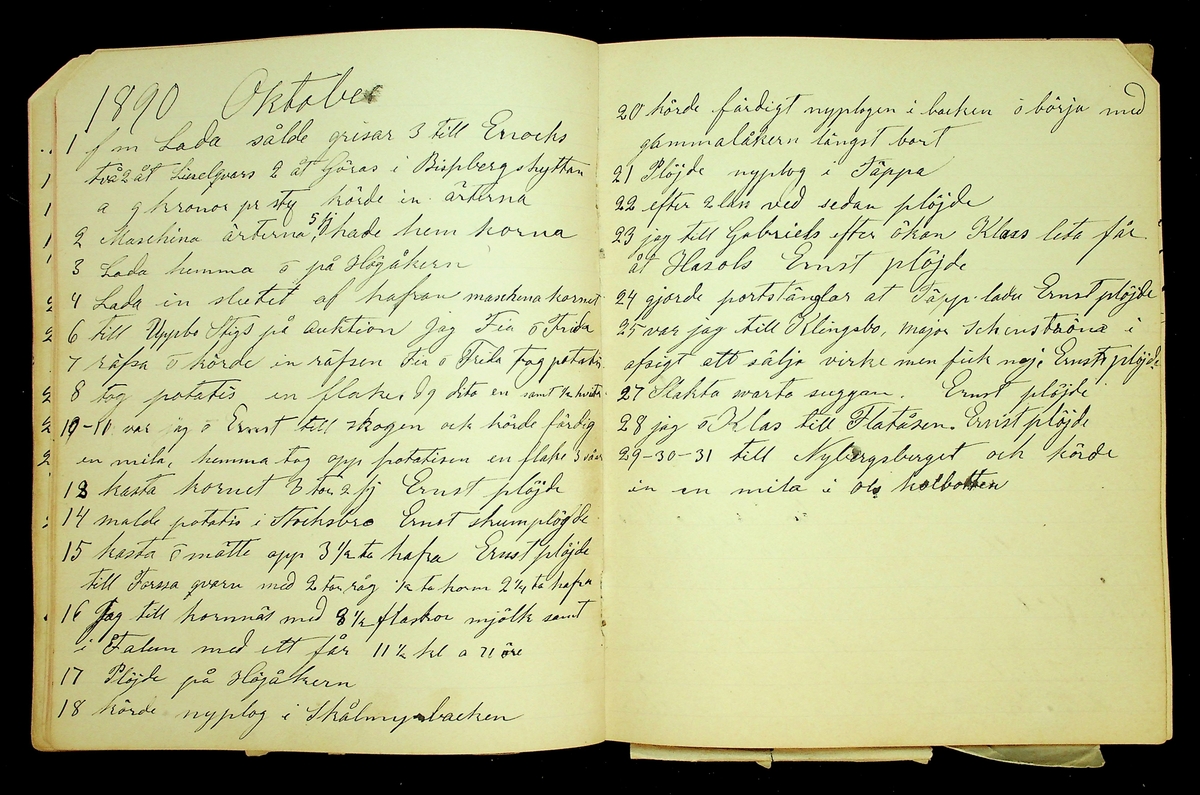 1890 Oktober
1 f m Lada sålde grisar 3 till Enochs
två 2 åt 2 åt Göras i Bispbergshyttan
a 9 kronor pr sty körde in ärterna
2 Maschina ärterna 5 fj, hade hem korna
3 Lada hemma o på Högåkern
4 Lada in slutet af hafran maschina kornet
6 till Uppbo Stigs på auktion Jag Fia o Frida
7 räfsa o körde in räfsen Fia o Frida tog potatis
8 tog potatis en flake. 9 dito en samt ½
10-11 var jag o Ernst till skogen och körde färdig
en mila, hemma tog opp potatisen en flake 3
13 kasta kornet 3 ton 2 fj Ernst plöjde
14 malde potatis i Stocksbro Ernst skumplöjde
15 kasta o mätte opp 3 ½ to hafra Ernst plöjde
till Torssa qvarn med 2 ton råg ½ to korn 2 ¼ to hafra
16 Jag till kornnäs med 8 ½ flaskor mjölk samt
i Falun med ett får 11 ½ kl a 71 öre
17 Plöjde på Högåkern
18 körde nyplog i Skålmyrbacken
20 körde färdigt nyplogen i backen o börja med
gammalåkern längst bort
21 Plöjde nyplog i Täppa
22 efter 2 lass ved sedan plöjde
23 jag till Gabriels efter ökan Klass leta får
åt Hasols Ernst plöjde
24 gjorde portstänglar at Täpp-ladu Ernst plöjde
25 var jag till Klingsbo, major Schenström i
afsigt att sälja virke men fick nej. Ernst plöjde
27 Slakta svarta suggan. Ernst plöjde
28 jag o Klas till Flatåsen. Ernst plöjde
29-30-31 till Nybergsberget och körde
in en mila i Ols kolbotten